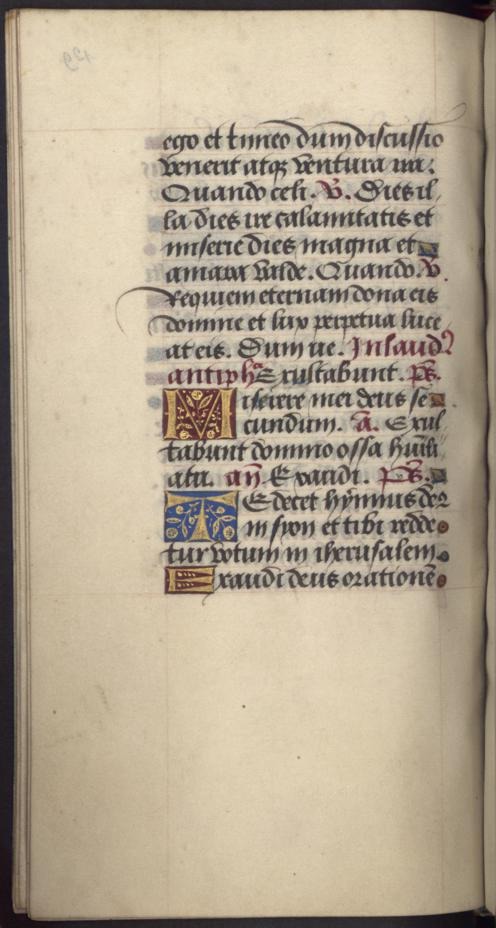 129
ego et timeo dum discussio
venerit atqꝫ ventura ira.
Quando celi. V̄. Dies il
la dies ire calamitatis et
miserie dies magna et
amara valde. Quando. V̄.
Requiem eternam dona eis
domine et lux perpetua luce
at eis. Dum ve. In laud̕
antiph̄ Exultabunt. Ps̄.
Miserere mei deus se
cundum. ā. Exul
tabunt domino ossa humili
ata. an̄ Exaudi. Ps̄.
TE decet hymnus de9
in syon et tibi redde
tur votum in iherusalem
Exaudi deus orationē